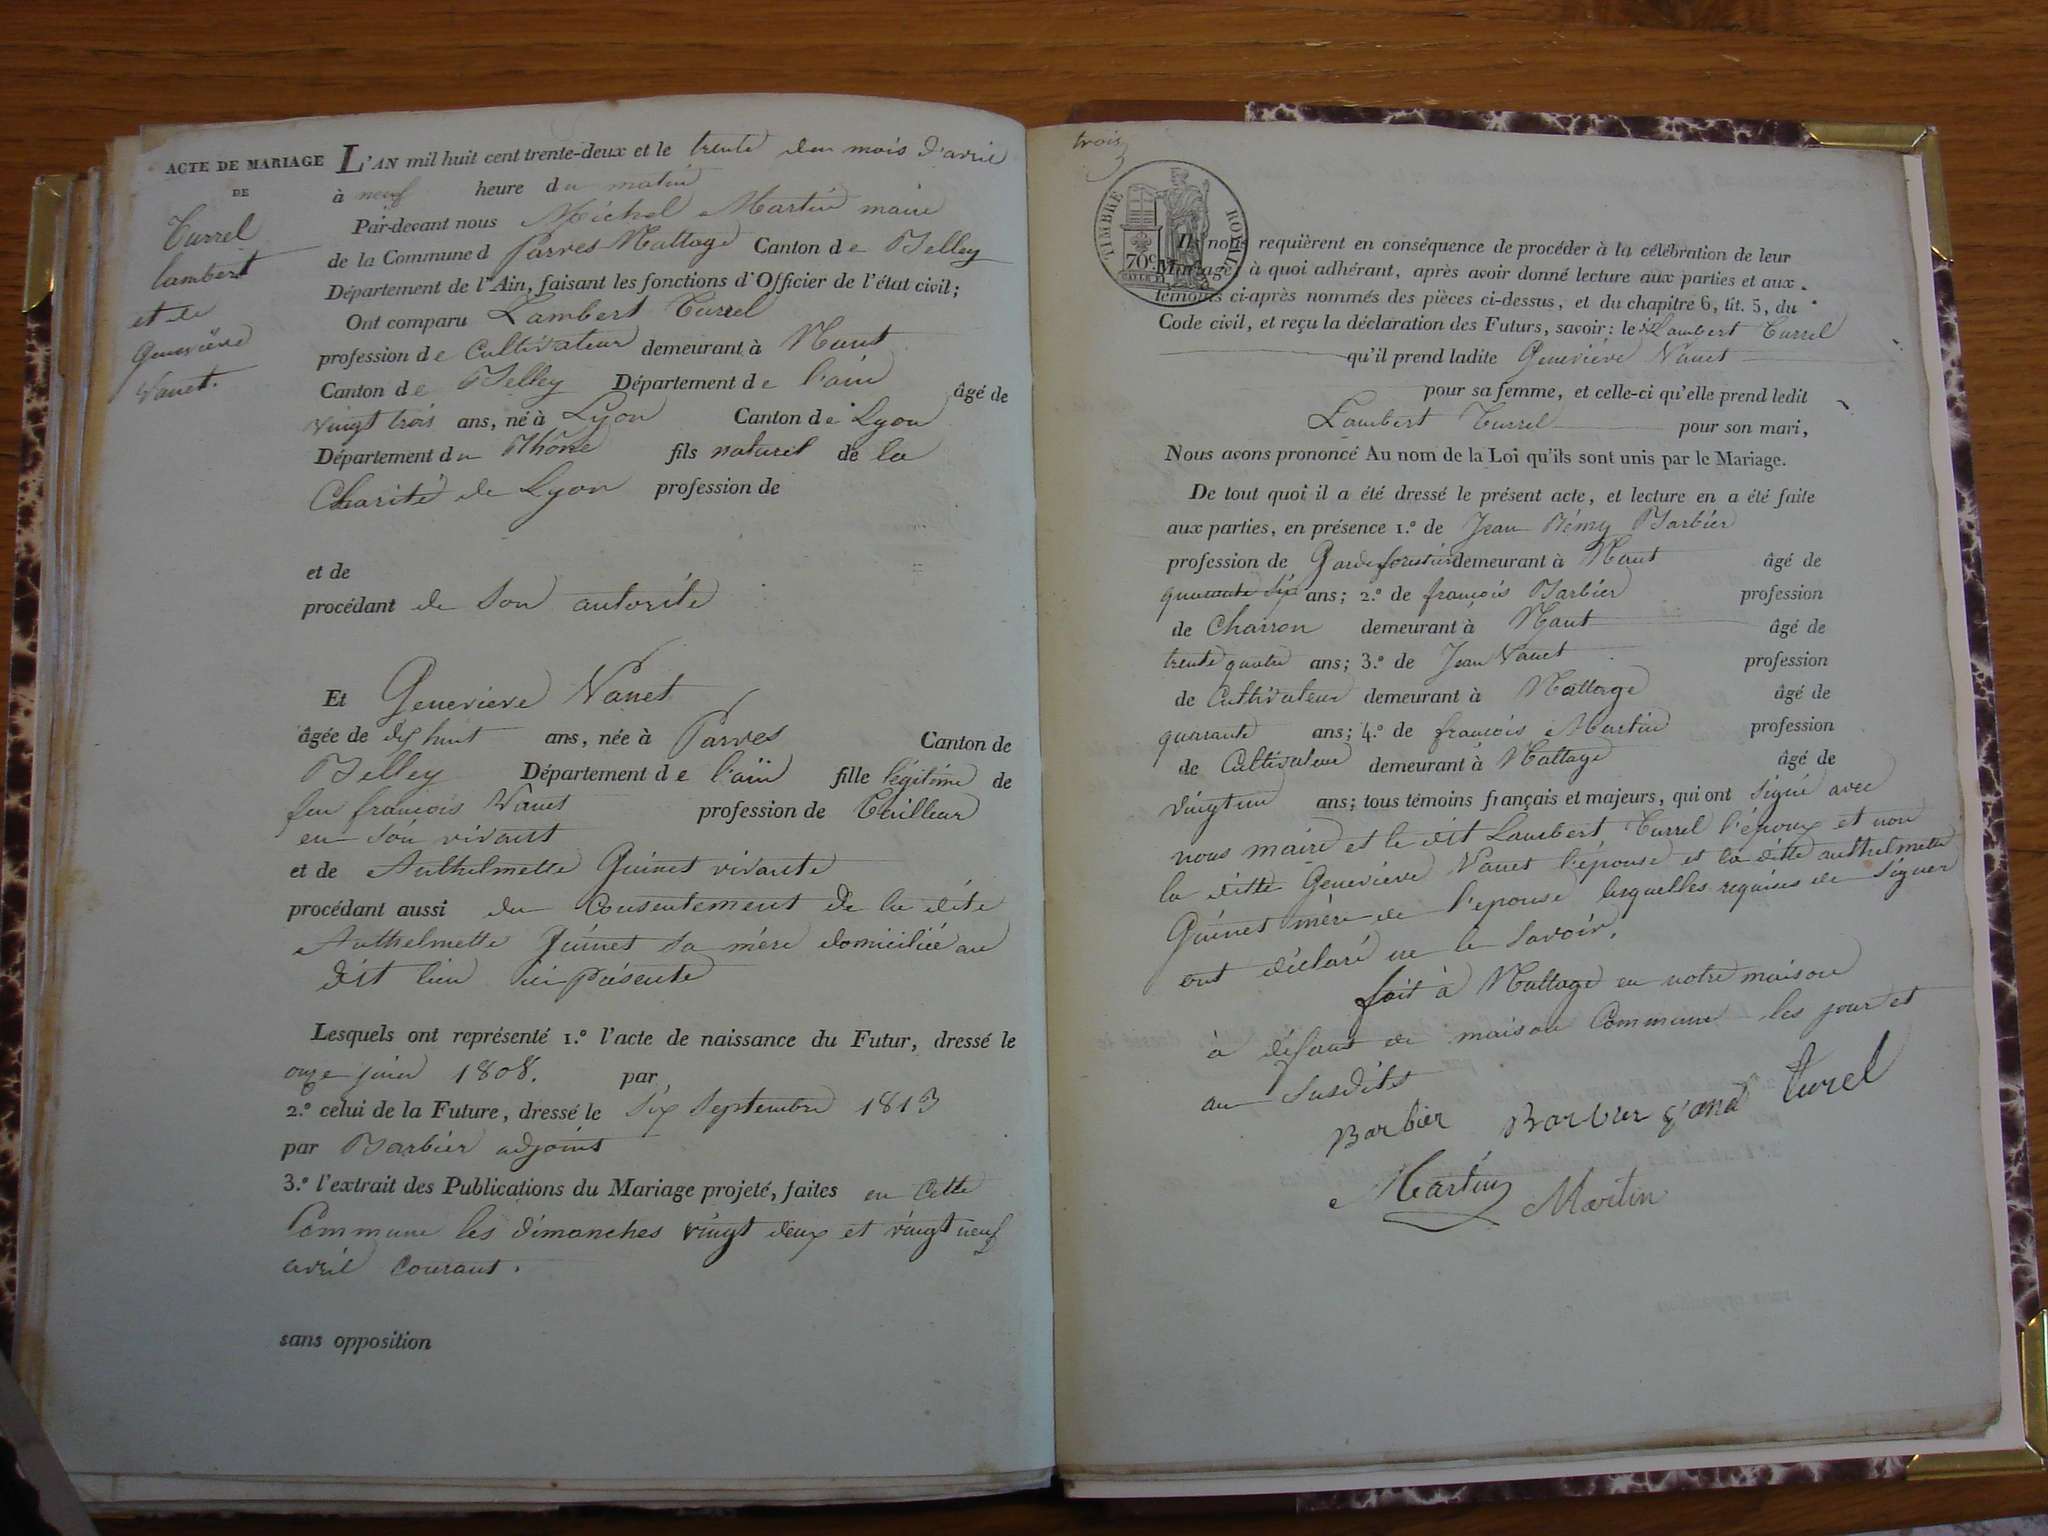 ACTE DE MARIAGE
DE
Turrel
lambert
et de
Geneviève
Vanet.
L'AN mil huit cent trente-deux et le trente du mois d'avril
à neuf heure du matin
Par-devant nous Michel Martin maire
de la Commune d Parves Nattage Canton de Belley
Département de l'Ain, faisant les fonctions d'Officier de l'état civil;
Ont comparu Lambert Turrel
profession de Cultivateur demeurant à Nant
Canton de Belley Département de l'ain âgé de
vingt trois ans, né à Lyon Canton de Lyon
Département du Rhône fils naturel de la
Charité de Lyon profession de
et de
procédant de son autorité
Et Geneviève Vanet
âgée de dix huit ans, née à Parves Canton de
Belley Département de l'ain fille légitime de
feu françois Vanet profession de Tailleur
en son vivant
et de Anthelmette Guinet vivante
procédant aussi du Consentement de la dite
Anthelmette Guinet sa mère domiciliée au
dit lieu ici présente
Lesquels ont représenté 1.º l'acte de naissance du Futur, dressé le
onze 1808. par
2.º celui de la Future, dressé le Six Septembre 1813
par Barbier adjoint
3.º l'extrait des Publications du Mariage projeté, faites en Cette
Commune les dimanches vingt deux et vingt neuf
avril Courant.
sans opposition
trois
3
TIMBRE ROYAL
70c.
Ils nous requièrent en conséquence de procéder à la célébration de leur
Mariage, à quoi adhérant, après avoir donné lecture aux parties et aux
témoins ci-après nommés des pièces ci-dessus, et du chapitre 6, tit. 5, du
Code civil, et reçu la déclaration des Futurs, savoir: le Lambert Turrel
qu'il prend ladite Geneviève Vanet
pour sa femme, et celle-ci qu'elle prend ledit
Lambert Turrel pour son mari,
Nous avons prononcé Au nom de la Loi qu'ils sont unis par le Mariage.
De tout quoi il a été dressé le présent acte, et lecture en a été faite
aux parties, en présence 1.º de Jean Rémy Barbier
profession de Garde forestier demeurant à Nant âgé de
quarante six ans; 2.º de françois Barbier profession
de Charron demeurant à Nant âgé de
trente quatre ans; 3.º de Jean Vanet profession
de Cultivateur demeurant à Nattage âgé de
quarante ans; 4.º de françois Martin profession
de Cultivateur demeurant à Nattage âgé de
vingt un ans; tous témoins français et majeurs, qui ont signé avec
nous maire et le dit Lambert Turrel l'époux et non
la ditte Geneviève Vanet l'épouse et la ditte anthelmette
Guinet mère de l'epouse lesquelles requises de signer
ont déclaré ne le savoir.
fait à Nattage en notre maison
à défaut de maison Commune les jour et
an susdits
Barbier Barbier Turel
Martin Martin